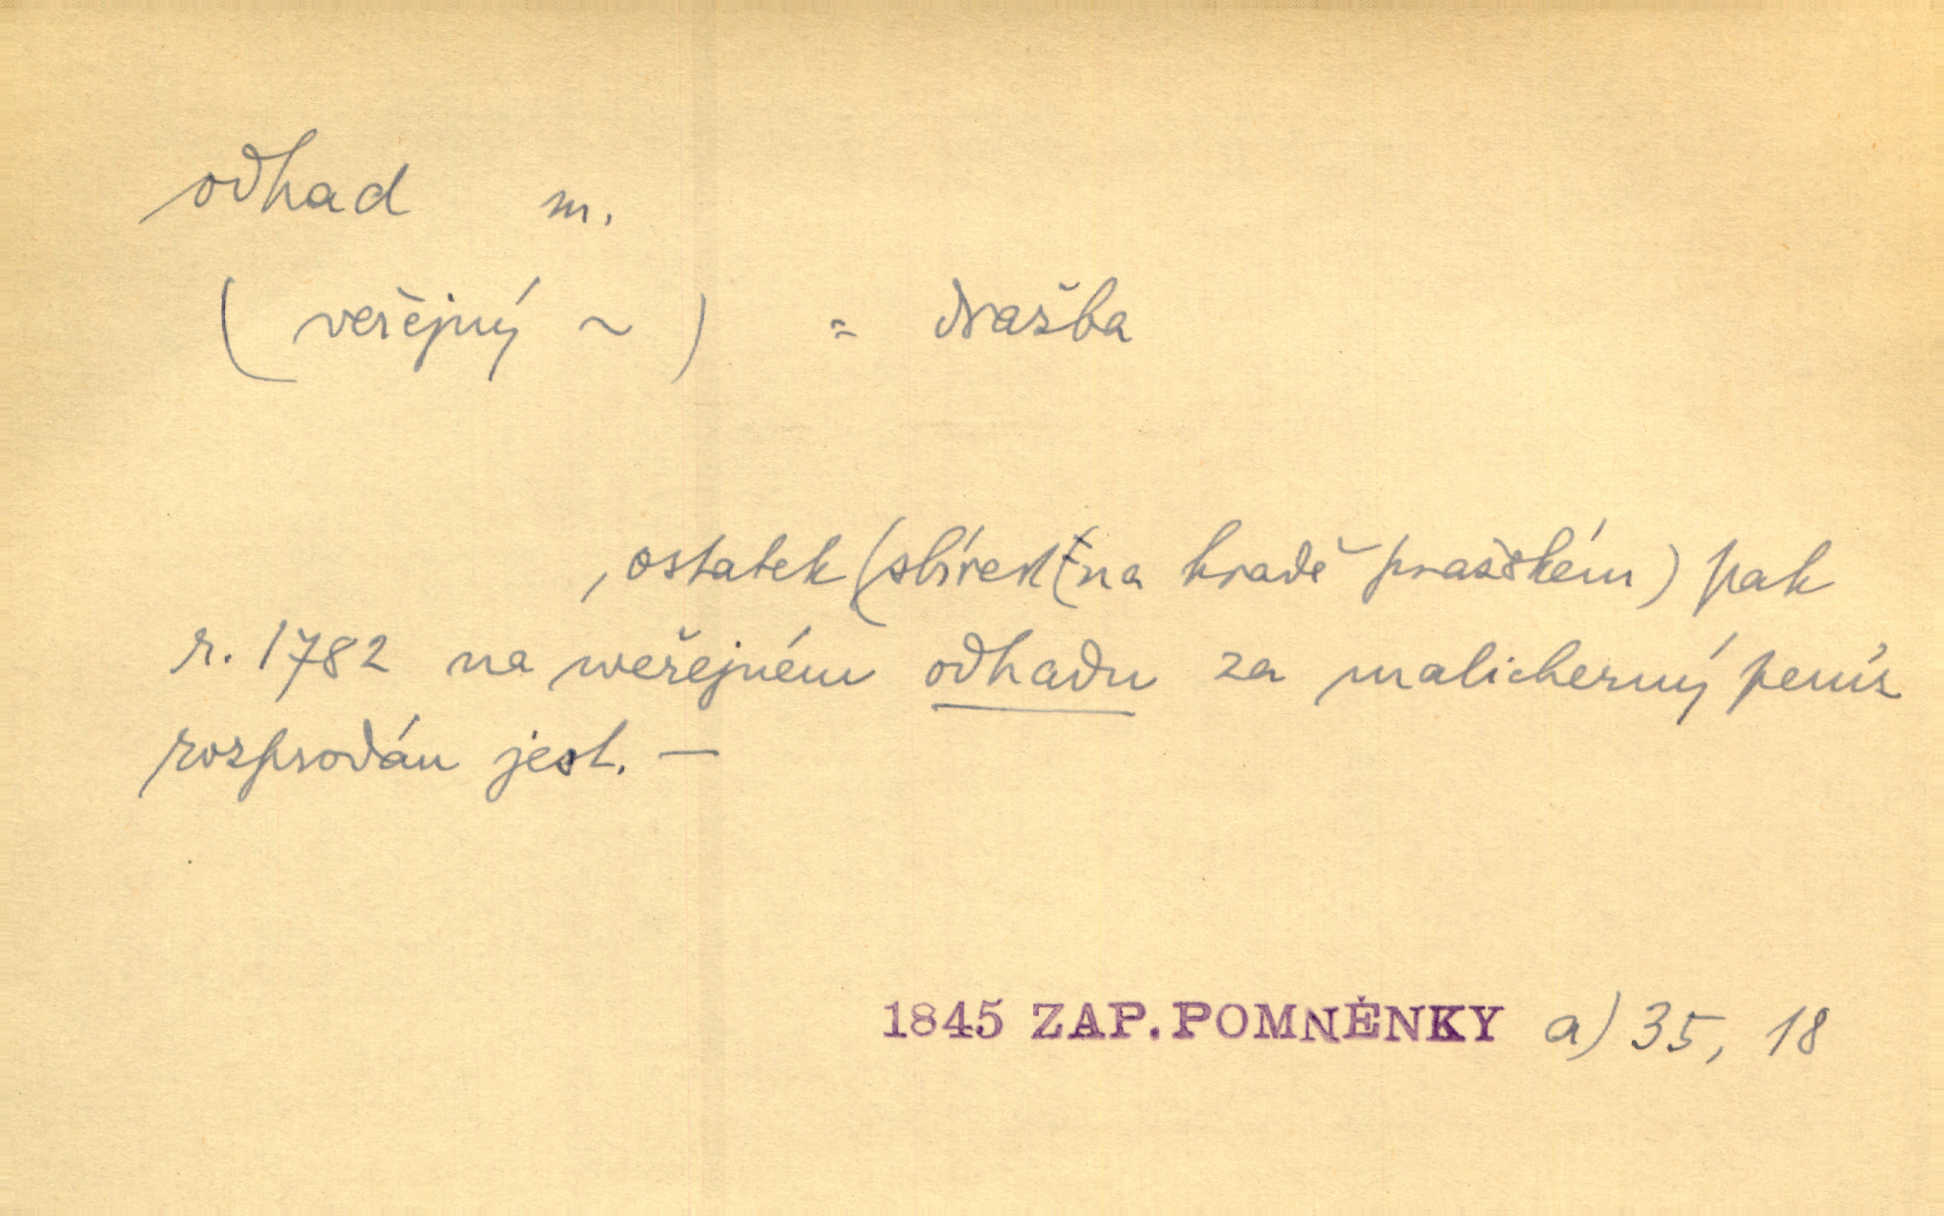 odhad m.
(veřejný ~) = dražba
, ostatek (sbírek (na hradě pražském) pak
r. 1782 na weřejném odhadu za malicherný peníz
rozprodán jest. —
1845 ZAP. POMNĚNKY a) 35, 18